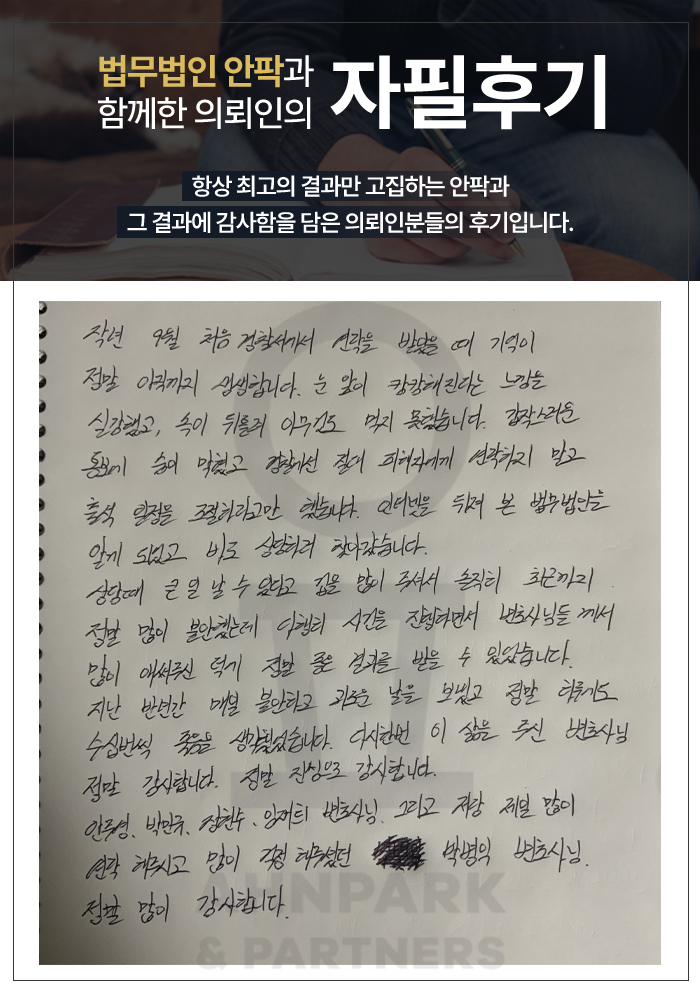 법무법인 안팍과
함께한 의뢰인의
자필후기
항상 최고의 결과만 고집하는 안팍과
그 결과에 감사함을 담은 의뢰인분들의 후기입니다.
작년 9월 처음 경찰서에서 연락을 받았을 때 기억이
정말 아직까지 생생합니다. 눈 앞이 캄캄해진다는 느낌을
실감했고, 속이 뒤틀려 아무것도 먹지 못했습니다. 갑작스러운
통보에 숨이 막혔고 경찰에선 절대 피해자에게 연락하지 말고
출석 일정을 조절하라고만 했습니다. 인터넷을 뒤져 본 법무법인을
알게 되었고 바로 상담하러 찾아갔습니다.
상담때 큰 일 날 수 있다고 겁을 많이 주셔서 솔직히 최근까지
정말 많이 불안했는데 디테일 사건을 진행하면서 변호사님들 께서
많이 애써주신 덕에 정말 좋은 결과를 받을 수 있었습니다.
지난 반년간 매일 불안하고 괴로운 날을 보냈고 정말 하루에도
수십번씩 죽음을 생각했었습니다. 다시한번 이 삶을 주신 변호사님
정말 감사합니다. 정말 진심으로 감사합니다.
안주영, 박민규, 정현수, 임재희 변호사님. 그리고 저랑 제일 많이
연락 해주시고 많이 걱정 해주셨던 박병익 변호사님.
정말 많이 감사합니다.
AHNPARK
& PARTNERS